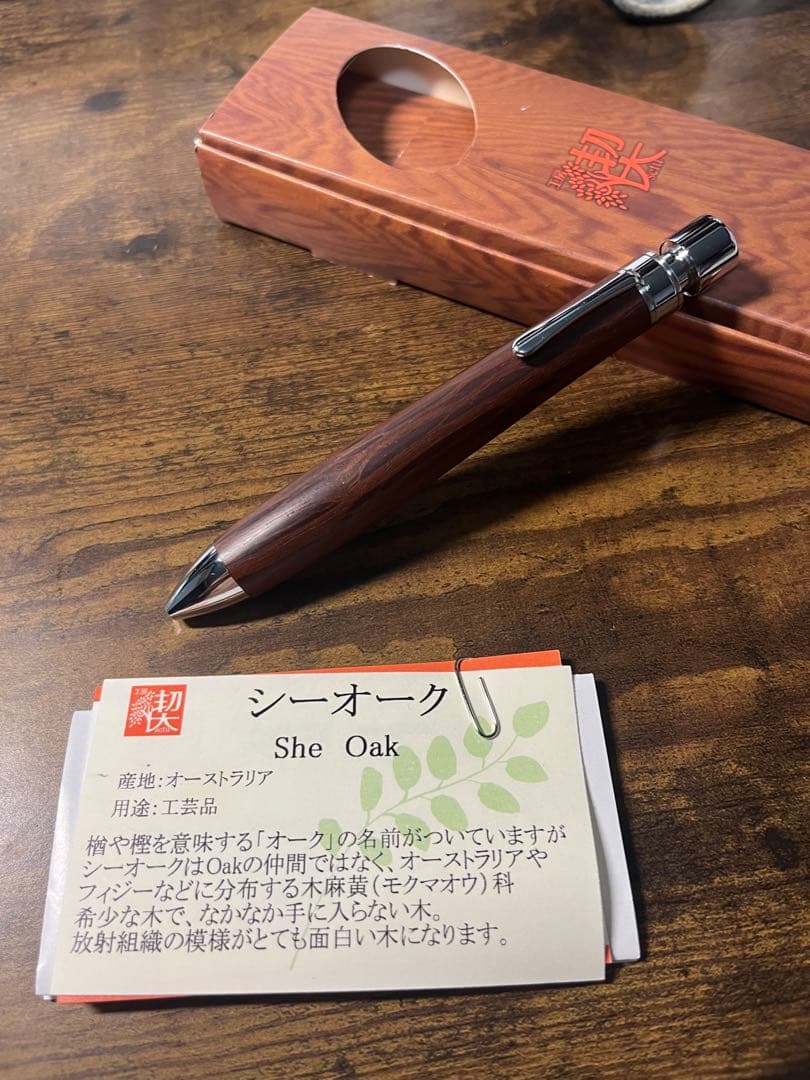 工房
楔
シーオーク
She Oak
産地:オーストラリア
用途:工芸品
楢や樫を意味する「オーク」の名前がついていますが
シーオークはOakの仲間ではなく、オーストラリアや
フィジーなどに分布する木麻黄(モクマオウ)科
希少な木で、なかなか手に入らない木。
放射組織の模様がとても面白い木になります。